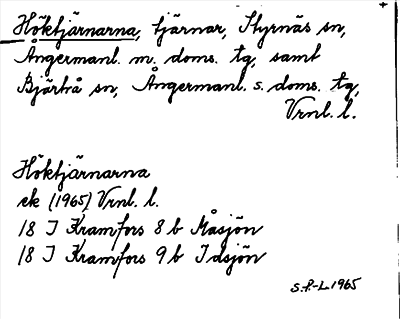 Höktjärnarna, tjärnar, Styrnäs sn,
Ångermanl. m. doms. tg, samt
Bjärtrå sn, Ångermanl. s. doms. tg,
Vrnl. l.
Höktjärnarna
ek (1965) Vrnl. l.
18 I Kramfors 8 b Måsjön
18 I Kramfors 9 b Idsjön
S.P-L 1965